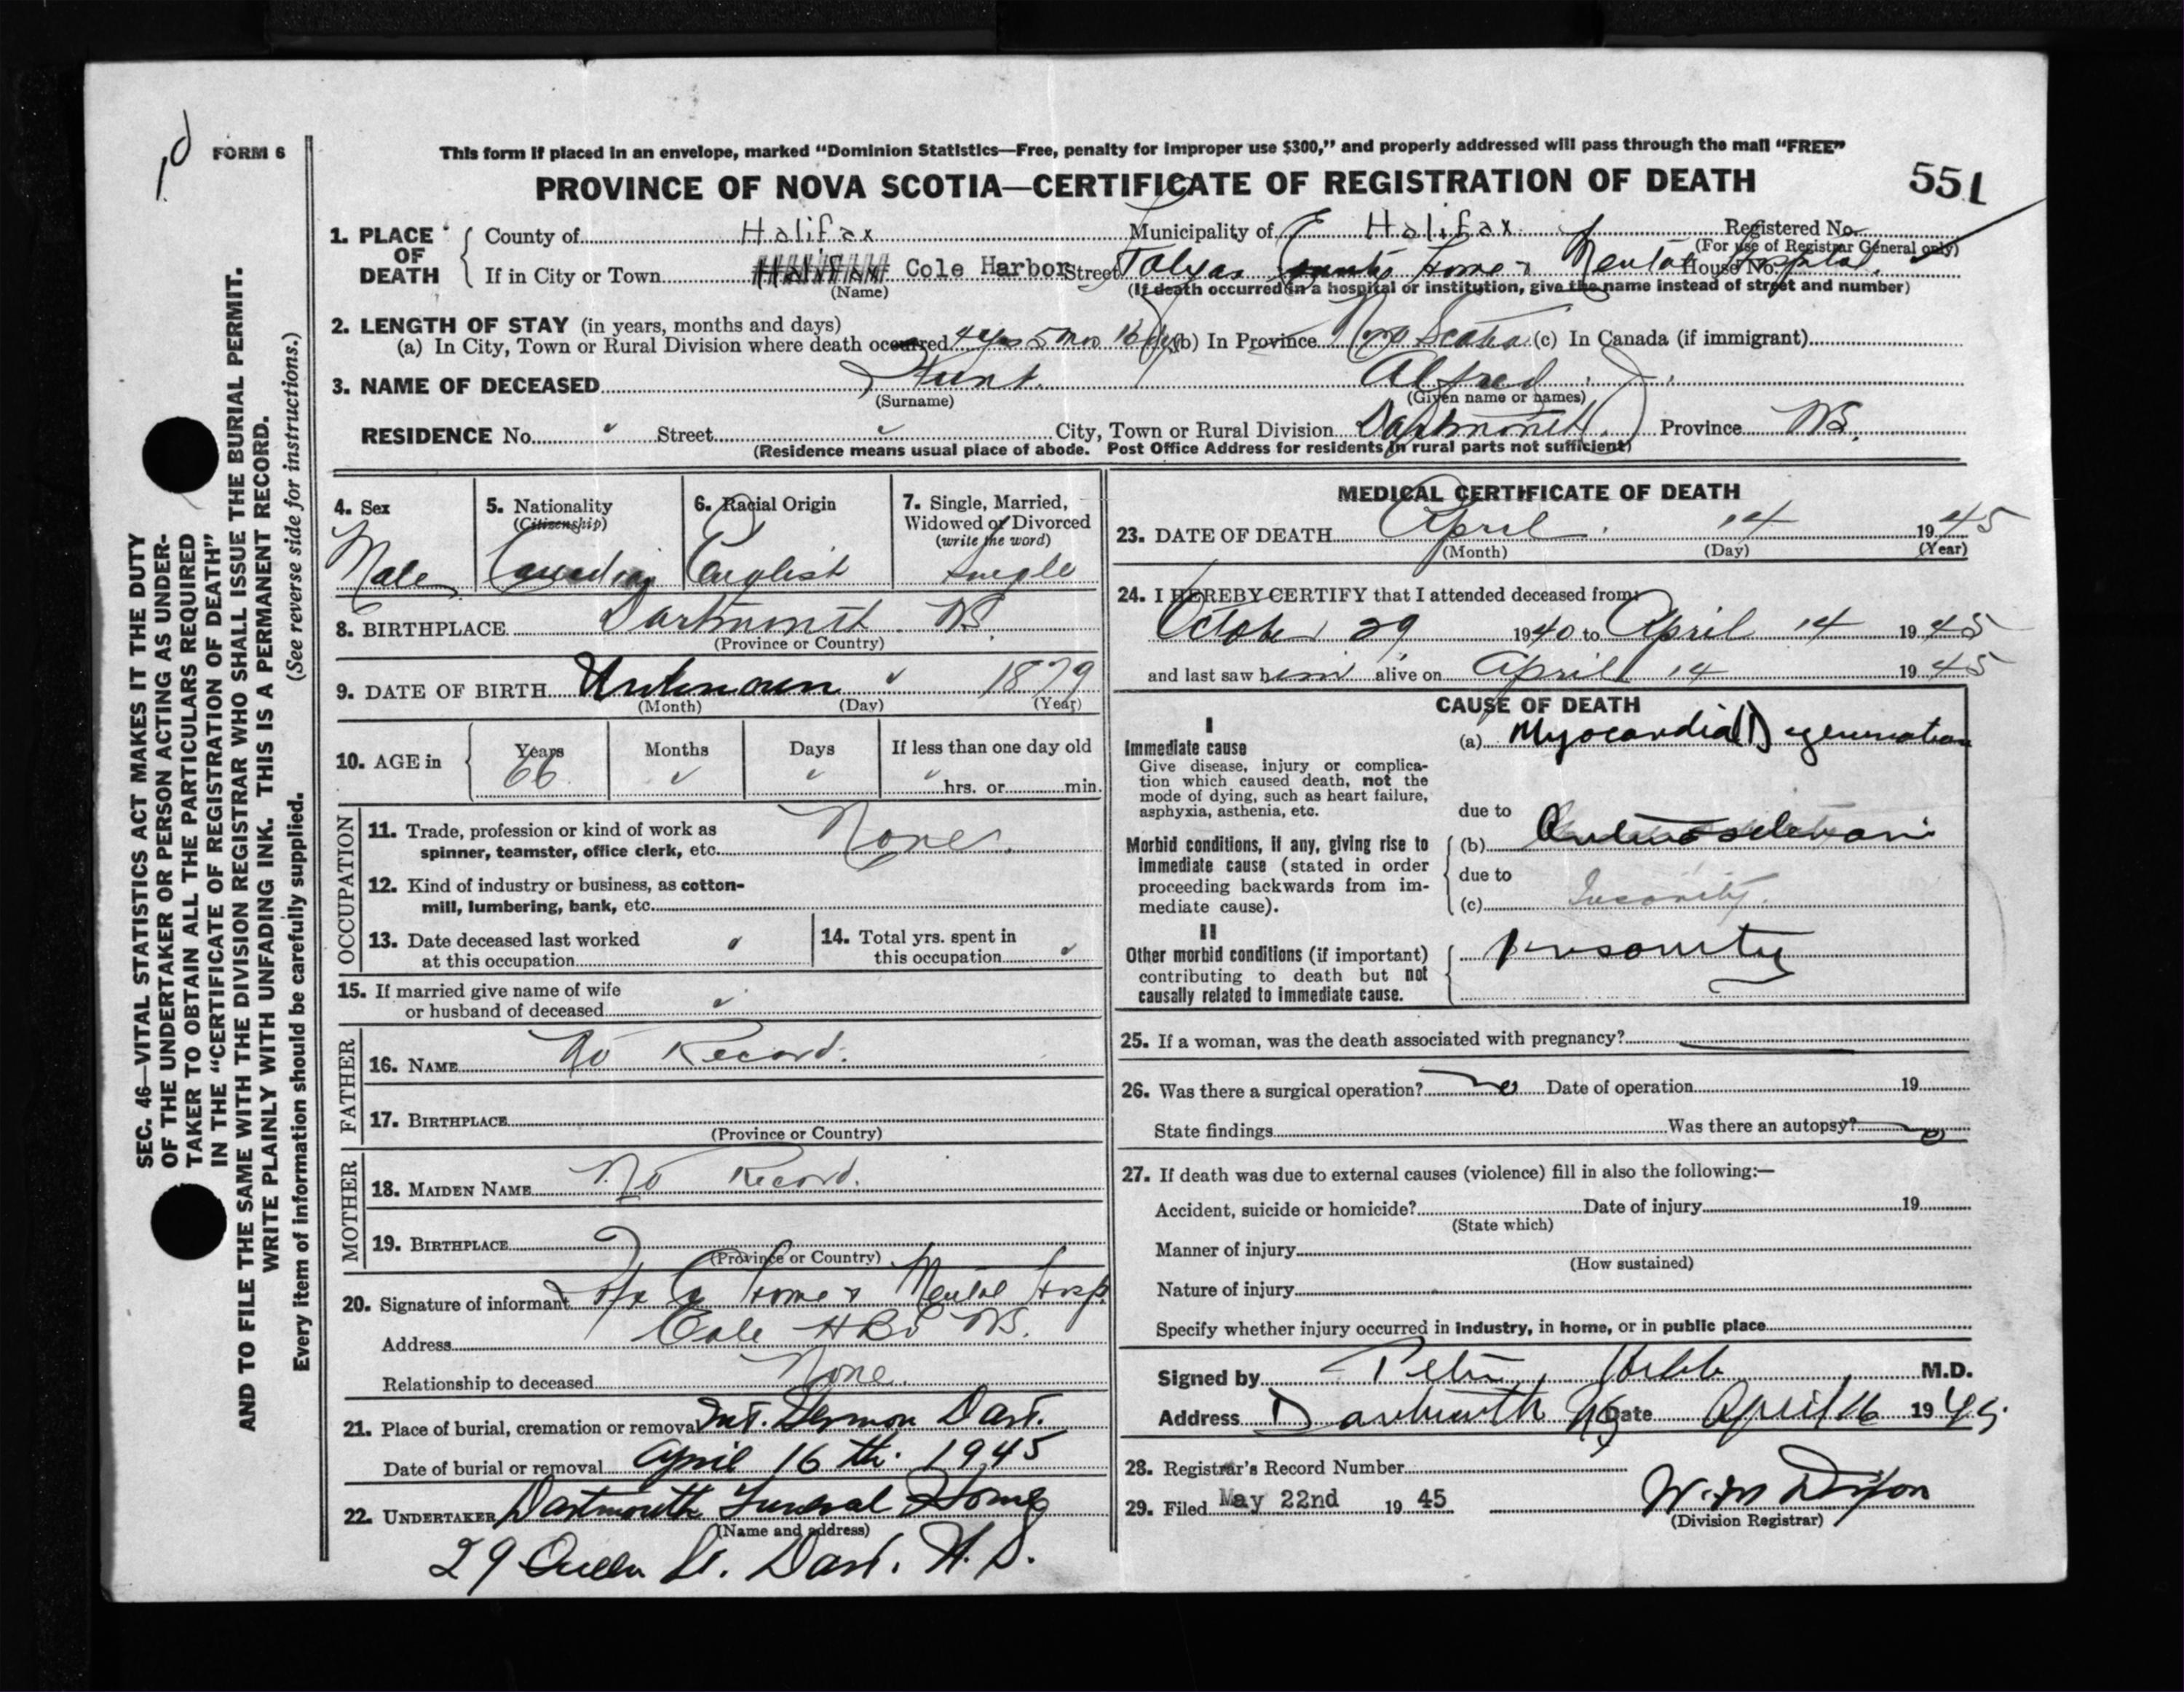 FORM 6
This form if placed in an envelope, marked "Dominion Statistics—Free, penalty for improper use $300," and properly addressed will pass through the mail "FREE"
PROVINCE OF NOVA SCOTIA—CERTIFICATE OF REGISTRATION OF DEATH
551
SEC. 46—VITAL STATISTICS ACT MAKES IT THE DUTY
OF THE UNDERTAKER OR PERSON ACTING AS UNDER-
TAKER TO OBTAIN ALL THE PARTICULARS REQUIRED
IN THE "CERTIFICATE OF REGISTRATION OF DEATH"
AND TO FILE THE SAME WITH THE DIVISION REGISTRAR WHO SHALL ISSUE THE BURIAL PERMIT.
WRITE PLAINLY WITH UNFADING INK. THIS IS A PERMANENT RECORD.
Every item of information should be carefully supplied. (See reverse side for instructions.)
1. PLACE OF DEATH
County of Halifax Municipality of Halifax Registered No.
(For use of Registrar General only)
If in City or Town Halifax Cole Harbor Street Halifax County Home & Mental Hospital House No.
(Name) (If death occurred in a hospital or institution, give the name instead of street and number)
2. LENGTH OF STAY (in years, months and days)
(a) In City, Town or Rural Division where death occurred 4 yrs 5 mos 16 dys (b) In Province Nova Scotia (c) In Canada (if immigrant)
3. NAME OF DECEASED Hunt Alfred
(Surname) (Given name or names)
RESIDENCE No. Street City, Town or Rural Division Dartmouth Province N.S.
(Residence means usual place of abode. Post Office Address for residents in rural parts not sufficient)
4. Sex Male
5. Nationality (Citizenship) Canadian
6. Racial Origin English
7. Single, Married, Widowed or Divorced (write the word) Single
8. BIRTHPLACE Dartmouth N.S.
(Province or Country)
9. DATE OF BIRTH Unknown 1879
(Month) (Day) (Year)
10. AGE in Years 66 Months Days If less than one day old
hrs. or min.
OCCUPATION
11. Trade, profession or kind of work as
spinner, teamster, office clerk, etc. None
12. Kind of industry or business, as cotton-
mill, lumbering, bank, etc.
13. Date deceased last worked
at this occupation
14. Total yrs. spent in
this occupation
15. If married give name of wife
or husband of deceased
FATHER
16. NAME No Record.
17. BIRTHPLACE
(Province or Country)
MOTHER
18. MAIDEN NAME No Record.
19. BIRTHPLACE
(Province or Country)
20. Signature of informant Hfx Co Home & Mental Hosp
Address Cole Hbr N.S.
Relationship to deceased None.
21. Place of burial, cremation or removal Mt. Hermon Dart.
Date of burial or removal April 16th. 1945
22. UNDERTAKER Dartmouth Funeral Home
(Name and address)
29 Queen St. Dart. N.S.
MEDICAL CERTIFICATE OF DEATH
23. DATE OF DEATH April 14 1945
(Month) (Day) (Year)
24. I HEREBY CERTIFY that I attended deceased from:
October 29 1940 to April 14 1945
and last saw him alive on April 14 1945
CAUSE OF DEATH
I
Immediate cause
Give disease, injury or complica-
tion which caused death, not the
mode of dying, such as heart failure,
asphyxia, asthenia, etc.
(a) Myocardial Degeneration
due to
Morbid conditions, if any, giving rise to
immediate cause (stated in order
proceeding backwards from im-
mediate cause).
(b)
due to
(c) Insanity.
II
Other morbid conditions (if important)
contributing to death but not
causally related to immediate cause.
Insanity
25. If a woman, was the death associated with pregnancy?
26. Was there a surgical operation? no Date of operation 19
State findings Was there an autopsy? no
27. If death was due to external causes (violence) fill in also the following:—
Accident, suicide or homicide? Date of injury 19
(State which)
Manner of injury
(How sustained)
Nature of injury
Specify whether injury occurred in industry, in home, or in public place
Signed by Peter Webb M.D.
Address Dartmouth NS Date April 16 1945
28. Registrar's Record Number
29. Filed May 22nd 1945 W. M Dixon
(Division Registrar)